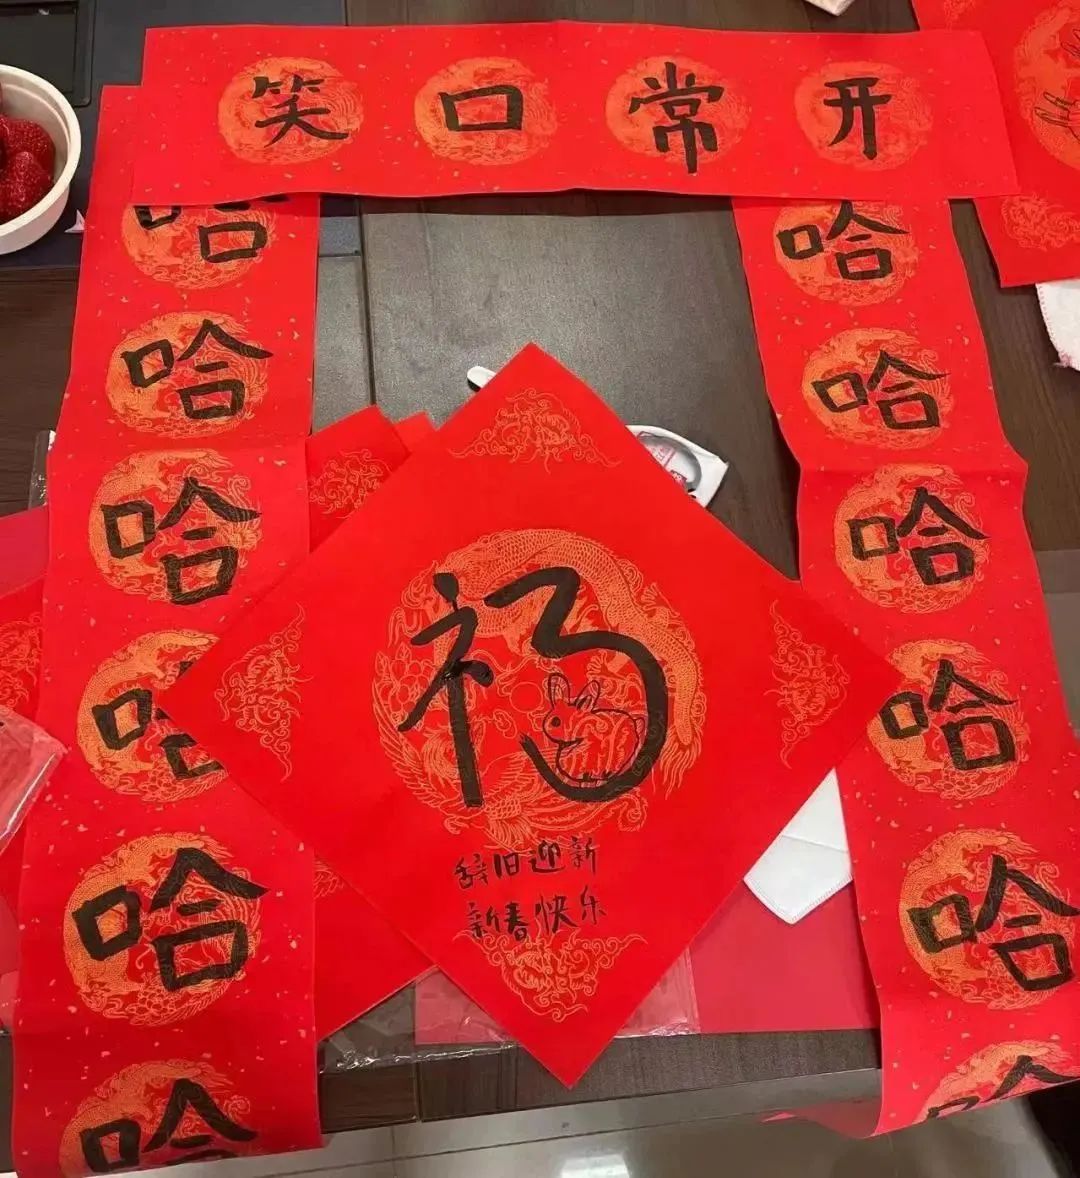 笑口常开
哈哈哈哈哈哈
福
辞旧迎新
新春快乐
哈哈哈哈哈哈